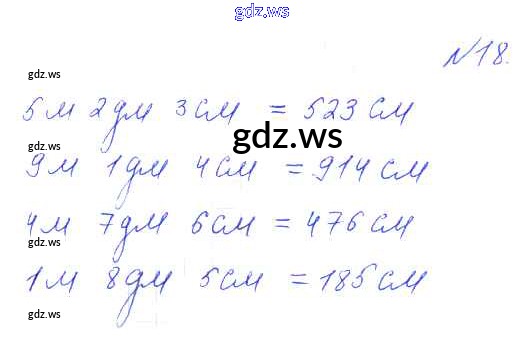 gdz.ws
N18.
gdz.ws
5м 2дм 3см = 523 см
gdz.ws
gdz.ws
9м 1дм 4см = 914 см
4м 7дм 6см = 476 см
gdz.ws
1м 8дм 5см = 185 см
gdz.ws